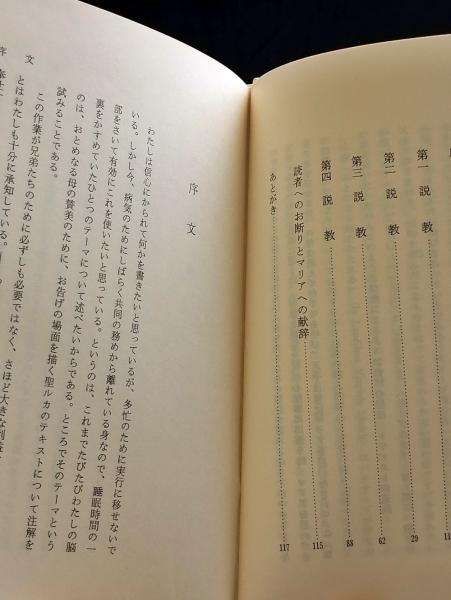 第一説教 11
第二説教 29
第三説教 62
第四説教 88
読者へのお断りとマリアへの献辞 115
あとがき 117
序文
わたしは信心にかられて何かを書きたいと思っているが、多忙のために実行に移せないで
いる。しかし今、病気のためにしばらく共同の務めから離れている身なので、睡眠時間の一
部をさいて有効にこれを使いたいと思っている。というのは、これまでたびたびわたしの脳
裏をかすめていたひとつのテーマについて述べたいからである。ところでそのテーマという
のは、おとめなる母の賛美のために、お告げの場面を描く聖ルカのテキストについて注解を
試みることである。
この作業が兄弟たちのために必ずしも必要ではなく、さほど大きな利益
とはわたしも十分に承知している。
序文